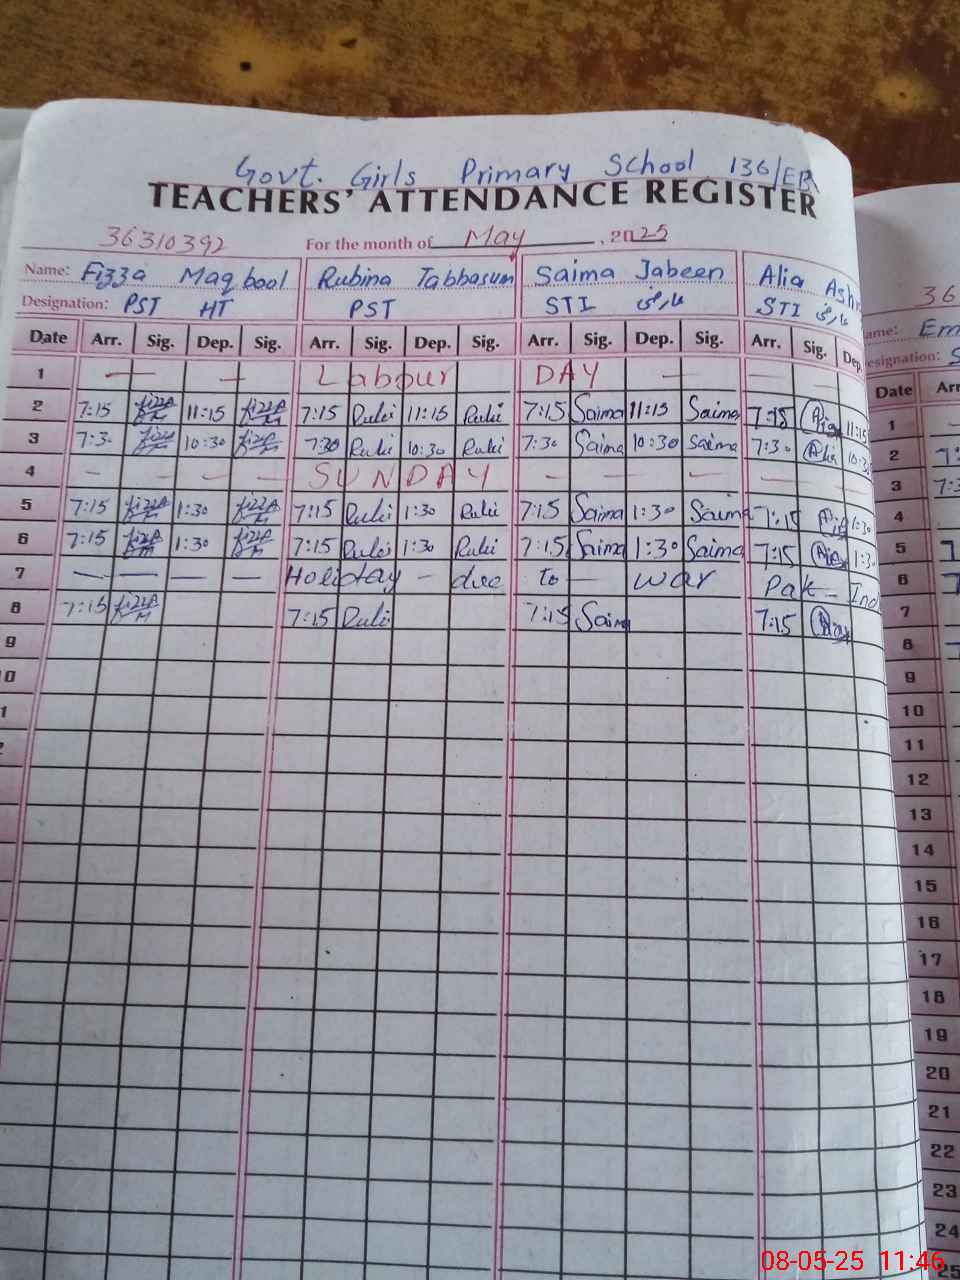 Govt. Girls Primary School 136/EB
TEACHERS' ATTENDANCE REGISTER
36310392 For the month of May, 2025
Name: Fizza Maqbool Rubina Tabbasum Saima Jabeen Alia Ashr
Designation: PST HT PST STI عارضی STI عارضی
Date Arr. Sig. Dep. Sig. Arr. Sig. Dep. Sig. Arr. Sig. Dep. Sig. Arr. Sig. Dep.
1 — — Labour DAY — — —
2 7:15 Fizza M 11:15 Fizza M 7:15 Rubi 11:15 Rubi 7:15 Saima 11:15 Saima 7:15 Alia 11:15
3 7:30 Fizza M 10:30 Fizza M 7:30 Rubi 10:30 Rubi 7:30 Saima 10:30 Saima 7:30 Alia 10:30
4 — — — — SUNDAY — — — — — —
5 7:15 Fizza M 1:30 Fizza M 7:15 Rubi 1:30 Rubi 7:15 Saima 1:30 Saima 7:15 Alia 1:30
6 7:15 Fizza M 1:30 Fizza M 7:15 Rubi 1:30 Rubi 7:15 Saima 1:30 Saima 7:15 Alia 1:3
7 — — — — Holiday — due to — war Pak - Ind
8 7:15 Fizza M 7:15 Rubi 7:15 Saima 7:15 Alia
9
0
1
2
36
ame: Em
esignation: S
Date Arr
1 —
2 7:
3 7:3
4
5 7
6 7
7
8 7
9
10
11
12
13
14
15
16
17
18
19
20
21
22
23
24
25
08-05-25 11:46